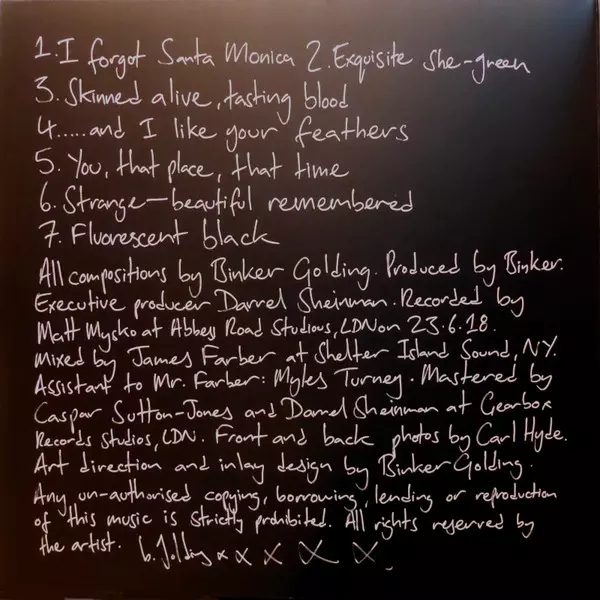 1. I forgot Santa Monica 2. Exquisite she-green
3. Skinned alive, tasting blood
4.....and I like your feathers
5. You, that place, that time
6. Strange-beautiful remembered
7. Fluorescent black
All compositions by Binker Golding. Produced by Binker.
Executive producer Darrel Sheinman. Recorded by
Matt Mysko at Abbey Road Studios, LDN on 23.6.18.
Mixed by James Farber at Shelter Island Sound, NY.
Assistant to Mr. Farber: Myles Turney. Mastered by
Caspar Sutton-Jones and Darrel Sheinman at Gearbox
Records studios, LDN. Front and back photos by Carl Hyde.
Art direction and inlay design by Binker Golding.
Any un-authorised copying, borrowing, lending or reproduction
of this music is strictly prohibited. All rights reserved by
the artist. b. Golding x x x x x